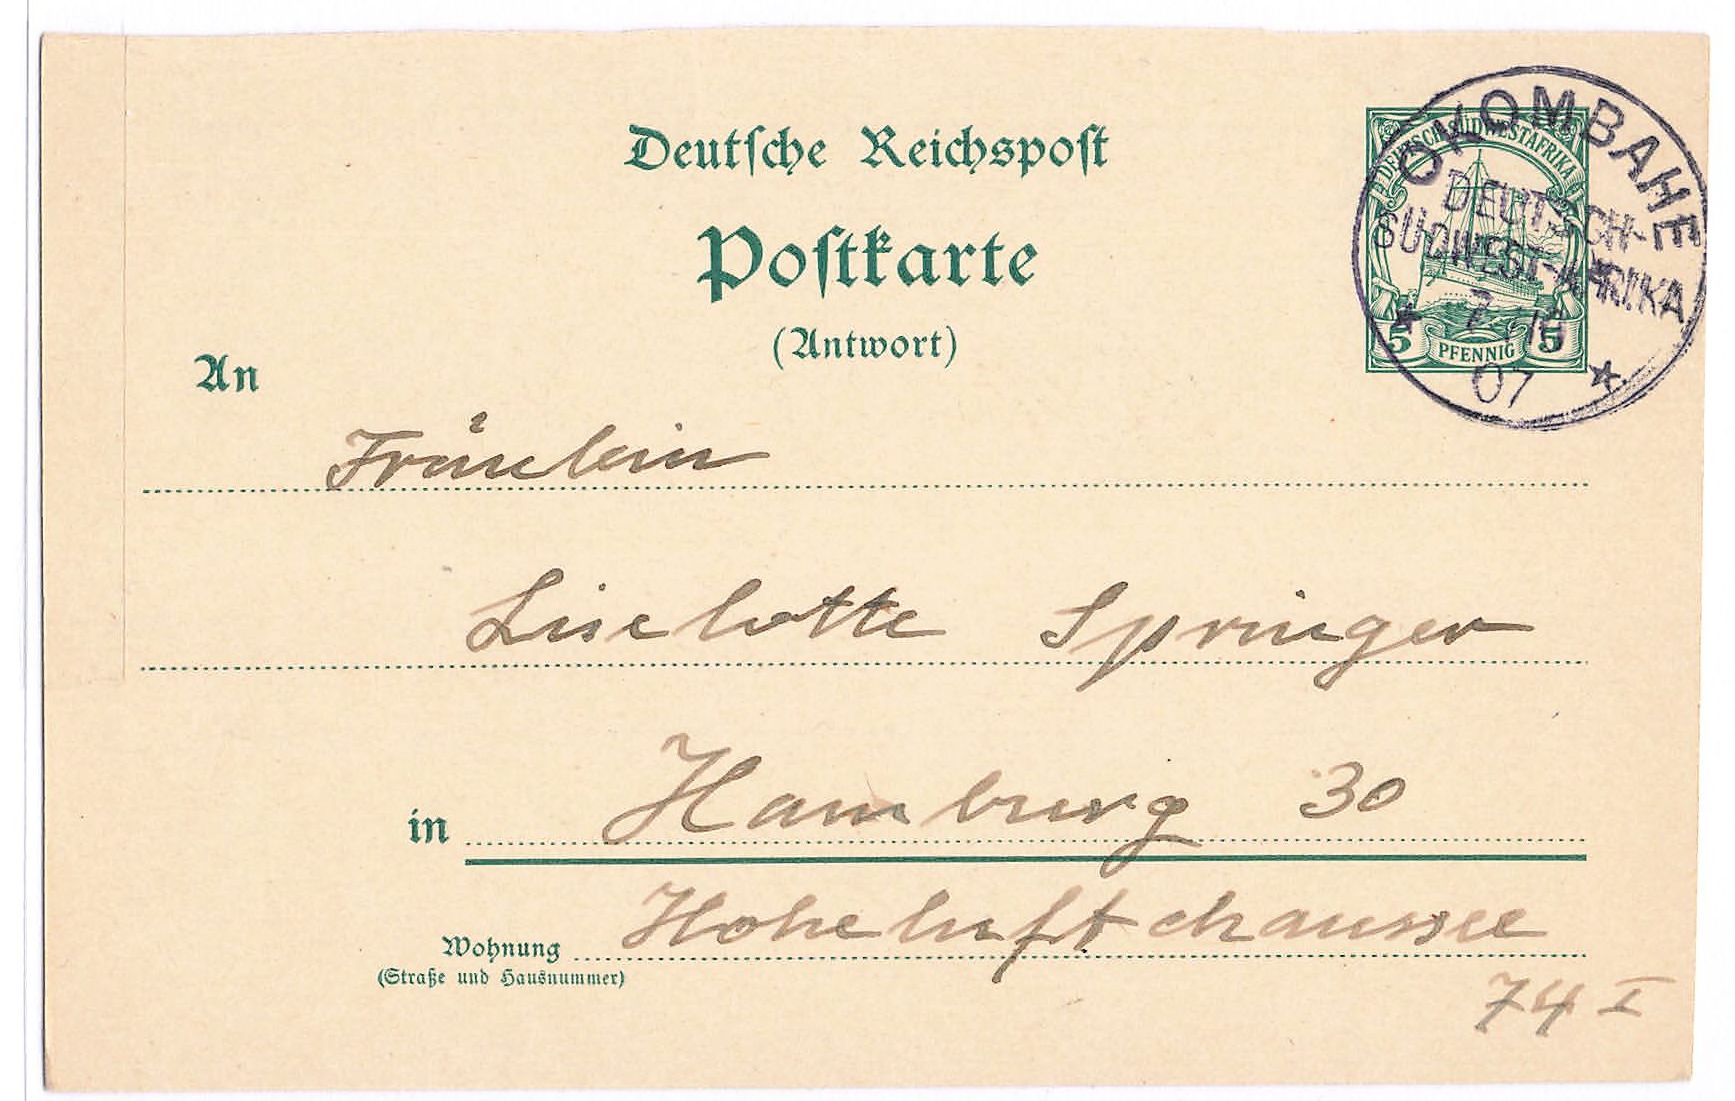 Deutsche Reichspost
Postkarte
(Antwort)
DEUTSCH-SÜDWESTAFRIKA
5 PFENNIG 5
OKOMBAHE
DEUTSCH-
SÜDWEST-AFRIKA
07
An
Fräulein
Liselotte Springer
in Hamburg 30
Wohnung Hoheluftchaussee
(Straße und Hausnummer)
74 I